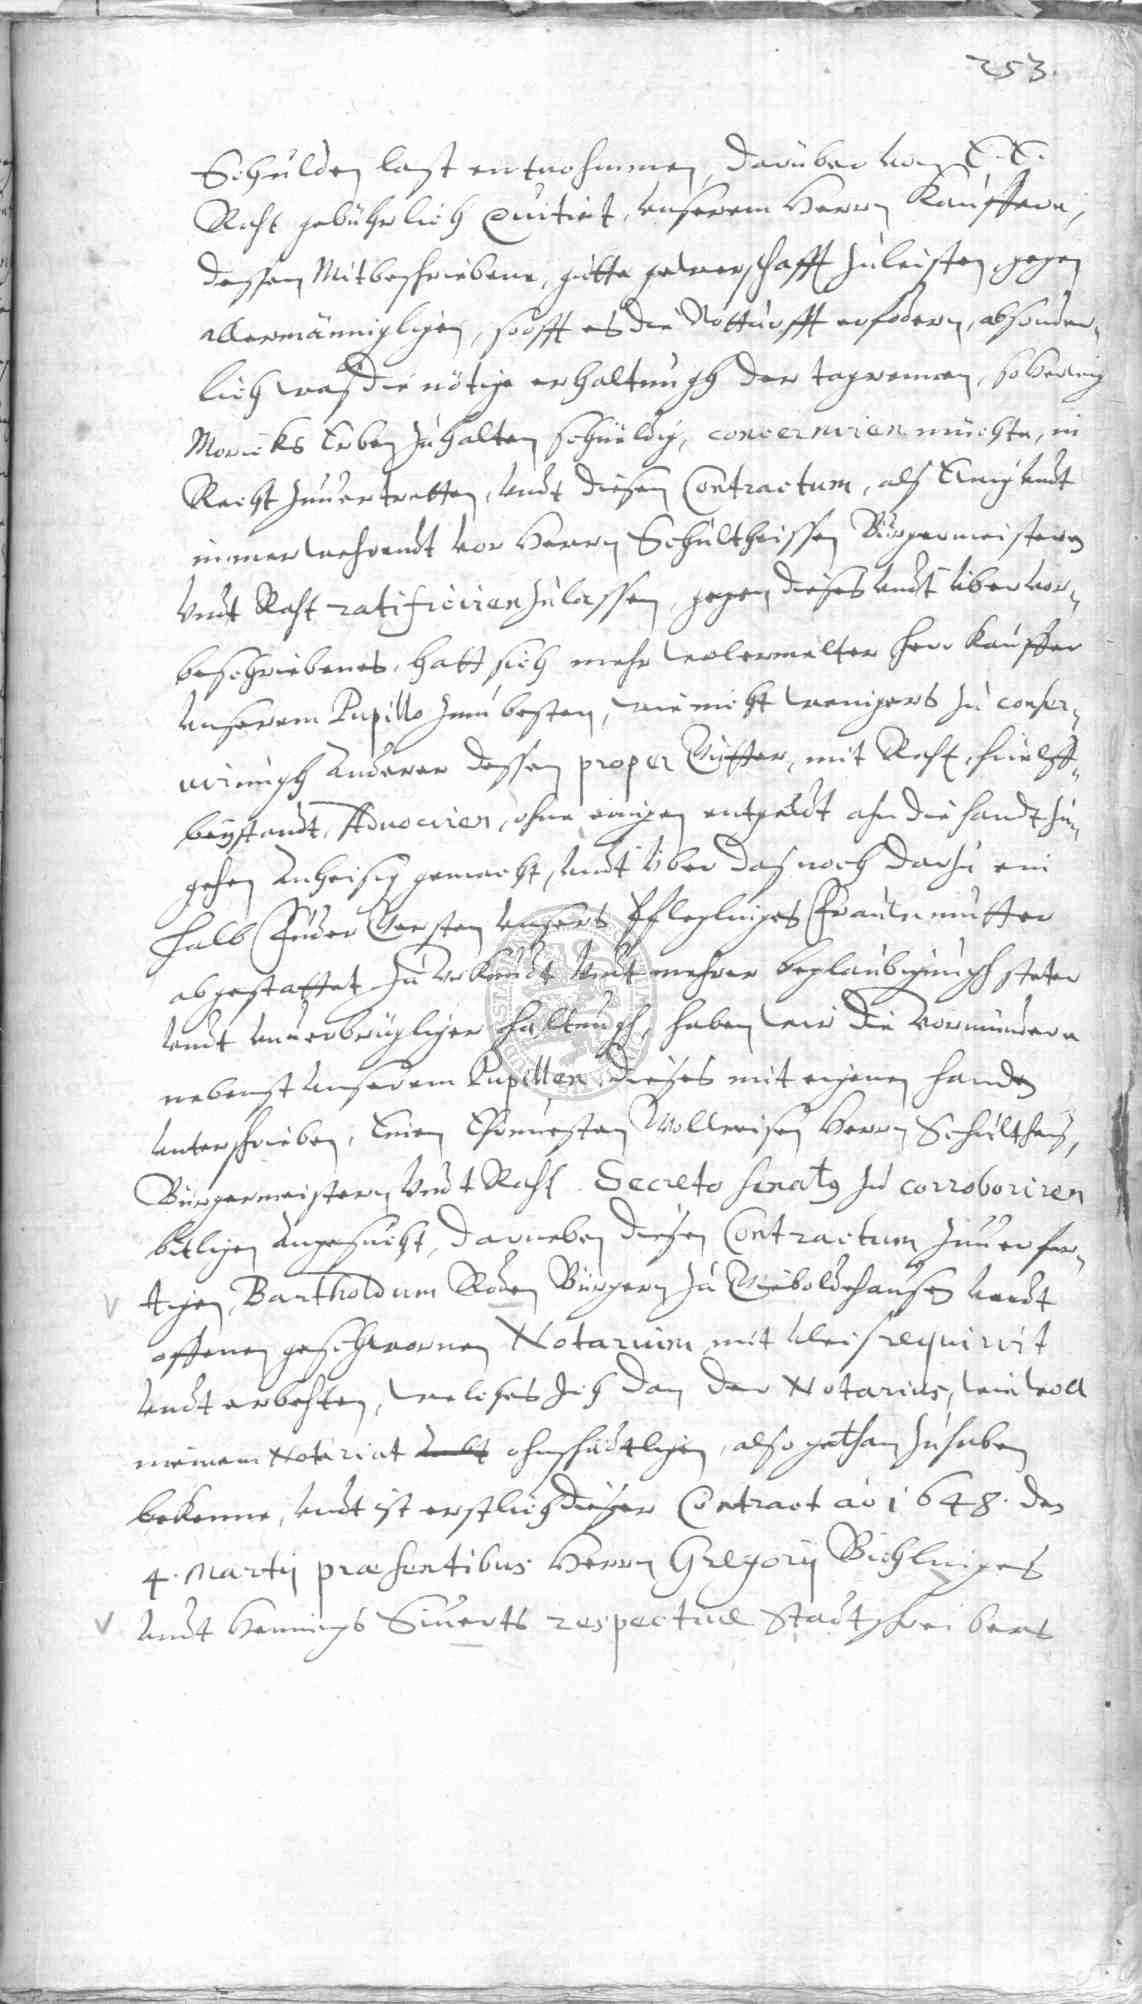 253.
Schulden last entnohmmen, darüber von E. E.
Raht gebührlich Quitirt, unserem Herrn Kauffern,
dessen Mitbeschriebene, gutte gewerschafft zuleisten, gegen
allermännigligen, sooft es die Notturfft erfodern, absonder-
lich waß die nötige erhaltungh der tagremen, so Hennig
Moricks Erben zuhalten schüldig, concerniren müchte, in
Recht zuuertretten, undt diesen Contractum, alß Ewig undt
immer wehrendt vor Herrn Schültheissen Bürgermeistern
Undt Raht ratificiren zulassen, gegen dieses undt über vor-
beschriebenes, hatt sich mehr wolermelter Herr Kauffer
unserem Pupillo zum besten, wie nicht wenigers zu conser-
uirungh anderer dessen proper Gütter, mit Raht, hüelff-
beystandt, Aduociren, ohne einigen entgeldt ahn die handt zu-
gehen anheisig gemacht, undt über daß noch darzu ein
halb Fuder Gersten unsers Pfleglinges Frauln mutter
abgestattet zu Urkundt undt mehrer beglaubigungh steter
undt unuerbrügliger haltungh, haben wir die vormündere
nebenst unserem Pupillen, dieses mit eigenen handen
unterschrieben, Einen Ehrnuesten Wollweisen Herrn Schültheis,
Bürgermeistern Undt Raht Secreto senatus zu corroboriren
bitligen angesucht, darneben diesen Contractum zuuerfer-
tigen, Bartholdum Roden Bürgern zu Gieboldehausen undt
offenen geschwornen Notarium mit vleis requirirt
undt erbehten, welches Ich dan der Notarius, wie woll
meinem Notariat ambt ohnschädtligen, also gethan zuhaben
bekenne, undt ist erstlich dieser Contract ao 1648. den
4. Martij præsentibus Herrn Gregorij Bichlinges
undt Hennings Siuerts respectiue Stadtschreibers